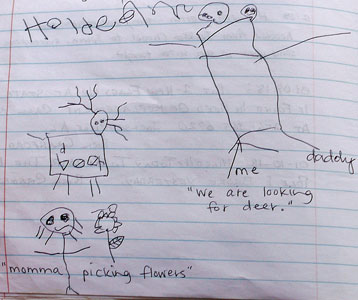 me
daddy
"we are looking
for deer."
"momma picking flowers"